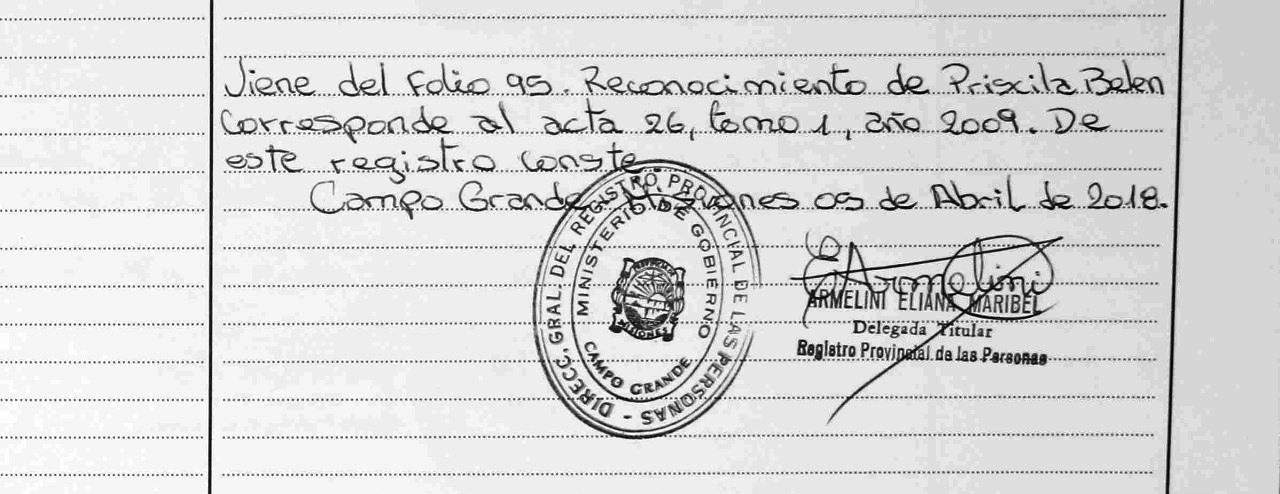 Viene del Folio 95. Reconocimiento de Priscila Belen
Corresponde al acta 26, tomo 1, año 2009. De
este registro Conste
Campo Grande, Misiones 05 de Abril de 2018.
DIRECC. GRAL. DEL REGISTRO PROVINCIAL DE LAS PERSONAS -
MINISTERIO DE GOBIERNO
CAMPO GRANDE
MISIONES
EArmelini
ARMELINI ELIANA MARIBEL
Delegada Titular
Registro Provincial de las Personas